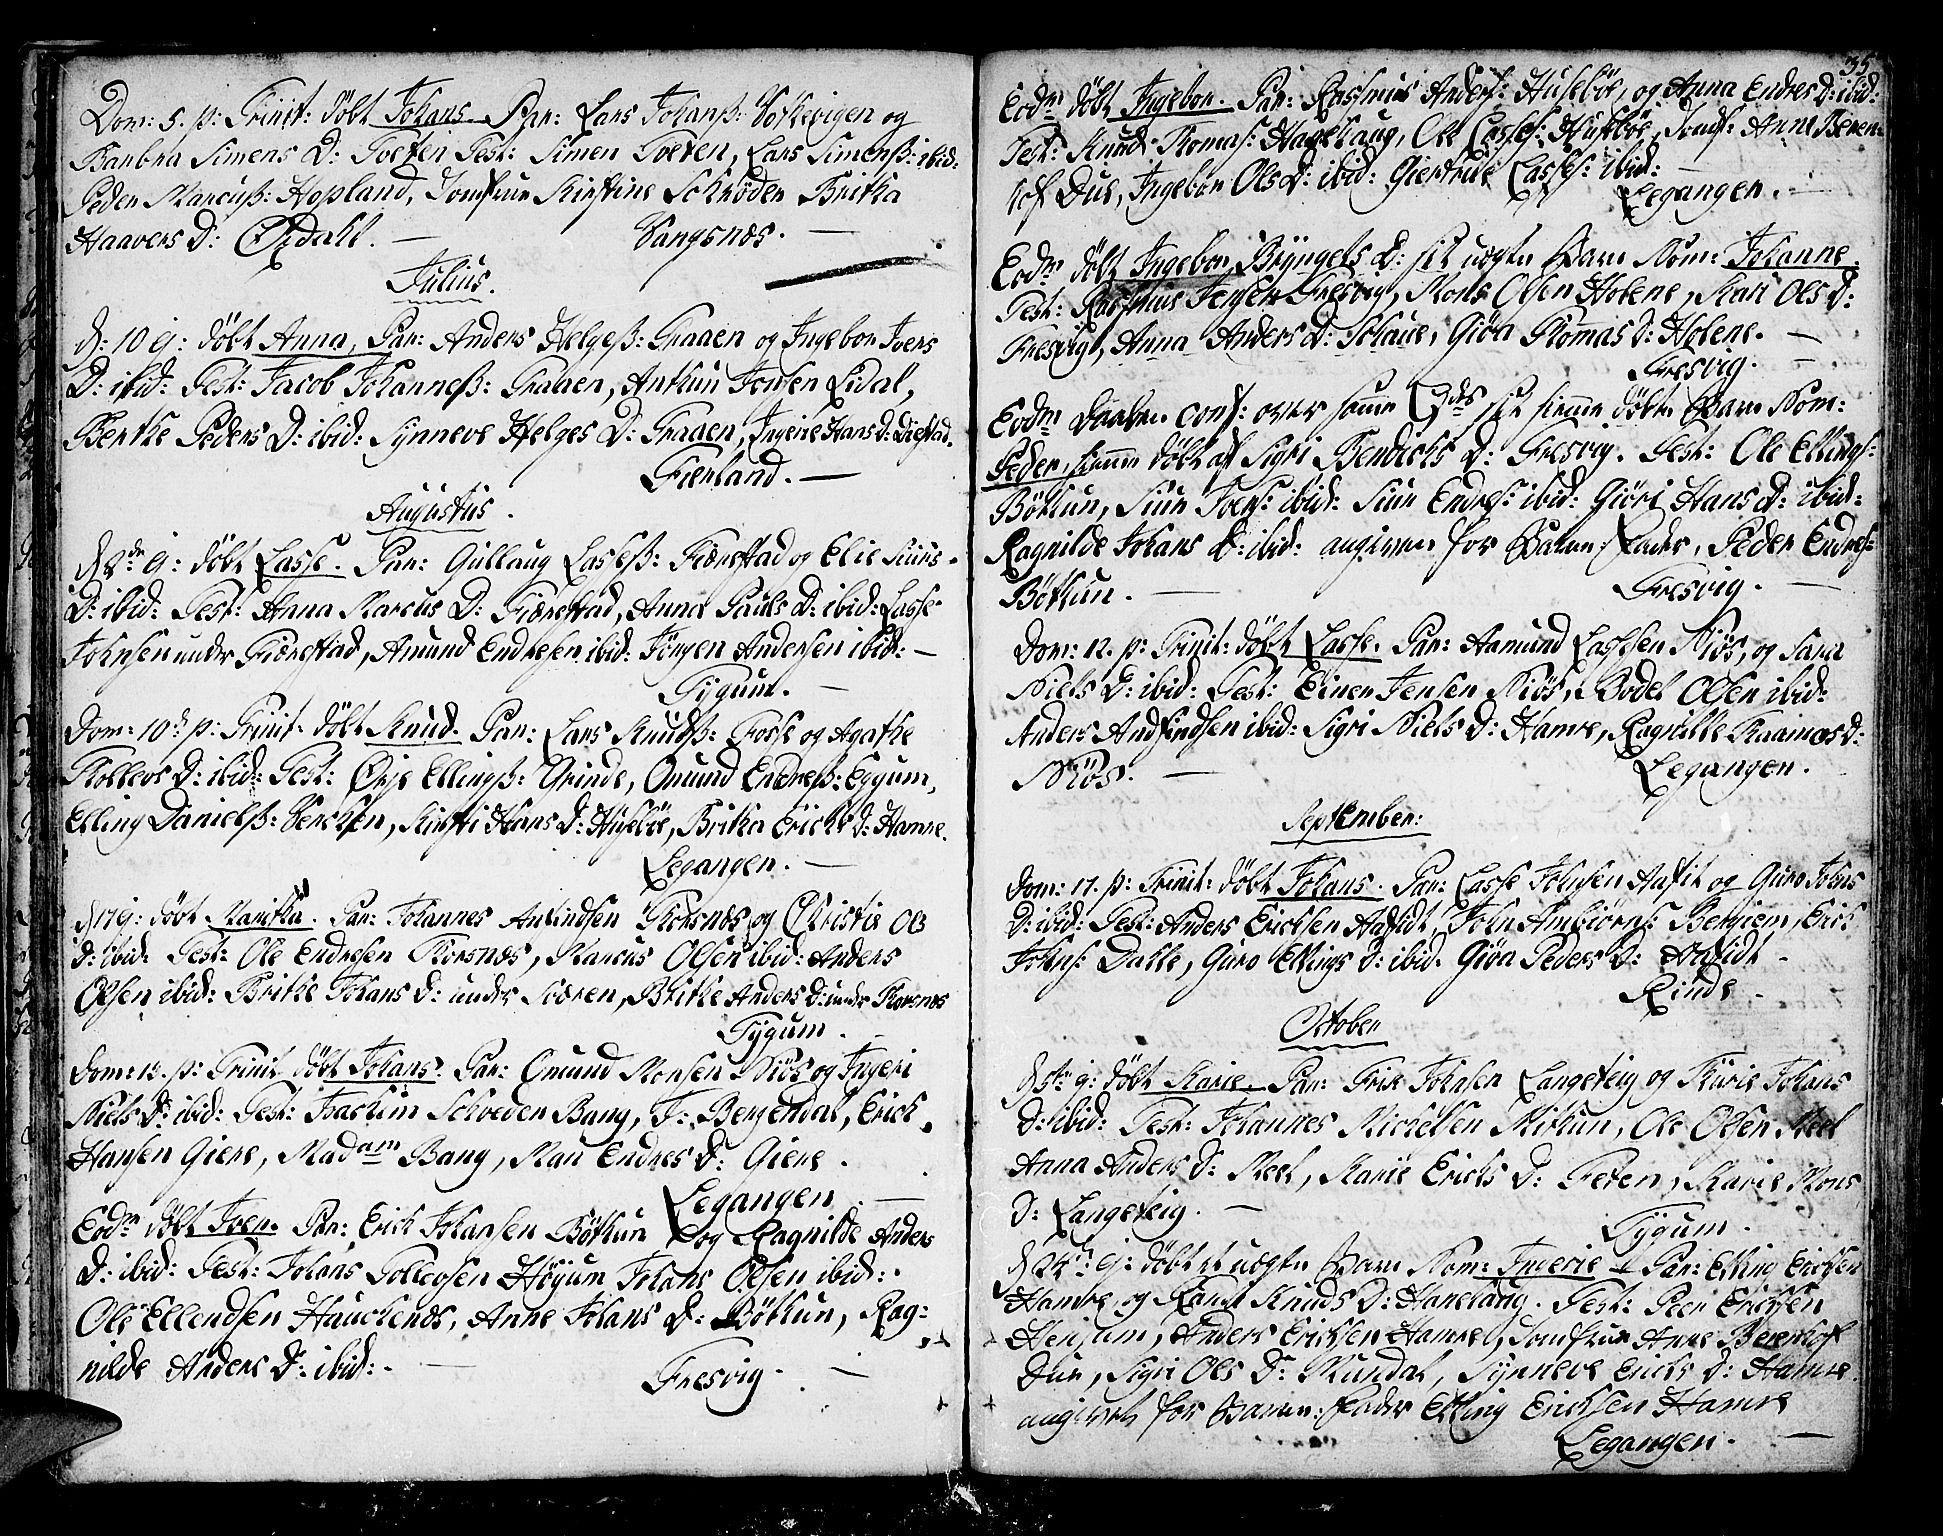 Dom: 5. p: Trinit: döbt Johans. Par: Lars Johanß: og
Barbra Simens D: Tveten Test: Simen Tveten, Lars Simenß: ibid:
Peder Marcuß: Hopland, Jomfrue Kirstine Schrøder Britha
Haavers D: Ordahl. — Vangsnæs. —
Julius.
d: 10 ej: döbt Anna, Par: Anders Helgeß: Graaen og Ingebor Ivers
D: ibid: Test: Jacob Johanneß: Graaen, Anthun Jensen Eidal,
Berthe Peders D: ibid: Synneve Helges D: Graaen, Ingerie Hans D:
Fierland. —
Augustus.
d 2de ej: döbt Lasse. Par: Gullaug Lasseß: Fiærestad og Elie Siurs
D: ibid: Test: Anna Marcus D: Fiærestad, Anna Pauls D: ibid: Lasse
Johnsen under Fiærestad, Amund Endresen ibid: Jörgen Andersen ibid: —
Tygum. —
Dom: 10d p: Trinit. döbt Knud. Par: Lars Knudß: Fosse og Agathe
Tollevs D: ibid: Test: Ellingß: Grinde, Omund Endreß: Eggum,
Elling Danielß: , Kirsti Hans D: Husebö, Britha Ericks D: Hamre.
Legangen. —
d 17 ej: döbt Maritha. Par: Johannes Anfindsen Thorsnæs og Christie Ols
D: ibid: Test: Ole Endresen Thorsnæs, Marcus Olsen ibid: Anders
Olsen ibid: Brithe Johans D: under , Brithe Anders D: under Thorsnæs
Tygum. —
Dom: 13. p: Trinit döbt Johans. Par: Omund Monsen Niös og Ingeri
Niels D: ibid: Test: Joachim Schveder Bang, F: Bergendal, Erick
Hansen Giere, Madam Bang, Mari Endres D: Giere.
Legangen. —
Eodm döbt Iver. Par: Erick Johansen Böthun og Ragnilde Anders
D: ibid: Test: Johans Tollevsen Höyum Johans Olsen ibid:
Ole Ellendsen Hauchenæs, Anne Johans D: Böthun, Rag:
nilde Anders D: ibid: — Fresvig. —
35
Eodm döbt Ingebor. Par: Rasmus Anders: Huseböe, og Anna Endres D: ibid:
Test: Knud Thomas: Hagelhaug, Ole Lasses: Huseböe, Jomf: Anne Beren:
hof Due, Ingebor Ols D: ibid: Giertrue Lasses: ibid: —
Legangen. —
Eodm döbt Ingebor Bryngels D: sit uægte Barn Nom: Johanne.
Test: Rasmus Jensen Fresvig, Mons Olsen Holene, Mari Ols D:
Fresvig, Anna Anders D: , Giöa Thomas D: Holene. —
Fresvig. —
Eodm Daaben conf: over Sigri sit hiemme döbte Barn Nom:
Peder, hiemme döbt af Sigri Bendicks D: Fresvig. Test: Ole Ellings:
Böthun, Siur Ivers: ibid: Siur Endres: ibid: Giöri Hans D: ibid:
Ragnilde Johans D: ibid: angiven for Barne: Fader, Peder Endres:
Böthun. — Fresvig. —
Dom: 12. p: Trinit: döbt Lasse. Par: Aamund Lassesen Niös, og Sara
Niels D: ibid: Test: Einer Jensen Niös, Bodel Olsen ibid:
Anders Anfindsen ibid: Sigri Niels D: Hamre, Ragnilde D:
Niös. — Legangen.
September:
Dom: 17. p: Trinit: döbt Johans. Par: Lasse Johnsen Aafet og Guro Johns
D: ibid: Test: Anders Ericksen Aafedt, John Ambiörns: Bergiem, Erick
Johns: Dalle, Guro Ellings D: ibid. Giöa Peders D: Aafedt —
Rinde —
October
d 5te ej: döbt Marie. Par: Erik Johnsen Langeteig og Marie Johans
D: ibid: Test: Johannes Michelsen Mithun, Ole Olsen Meel
Anna Anders D: Meel, Marie Ericks D: Feten, Marie Mons
D: Langeteig. — Tygum.
d 24de ej: döbt et uægte Barn Nom: Ingerie Par: Elling Ericksen
Hamre og Randi Knuds D: Hanehaug. Test: Peer Ericksen
Henjum, Anders Ericksen Hamre, Jomfrue Anne Berenhof
Due, Sigri Ols D: Mundal, Synneve Ericks D: Hamre.
angiven for Barne: fader Elling Ericksen Hamre
Legangen. —